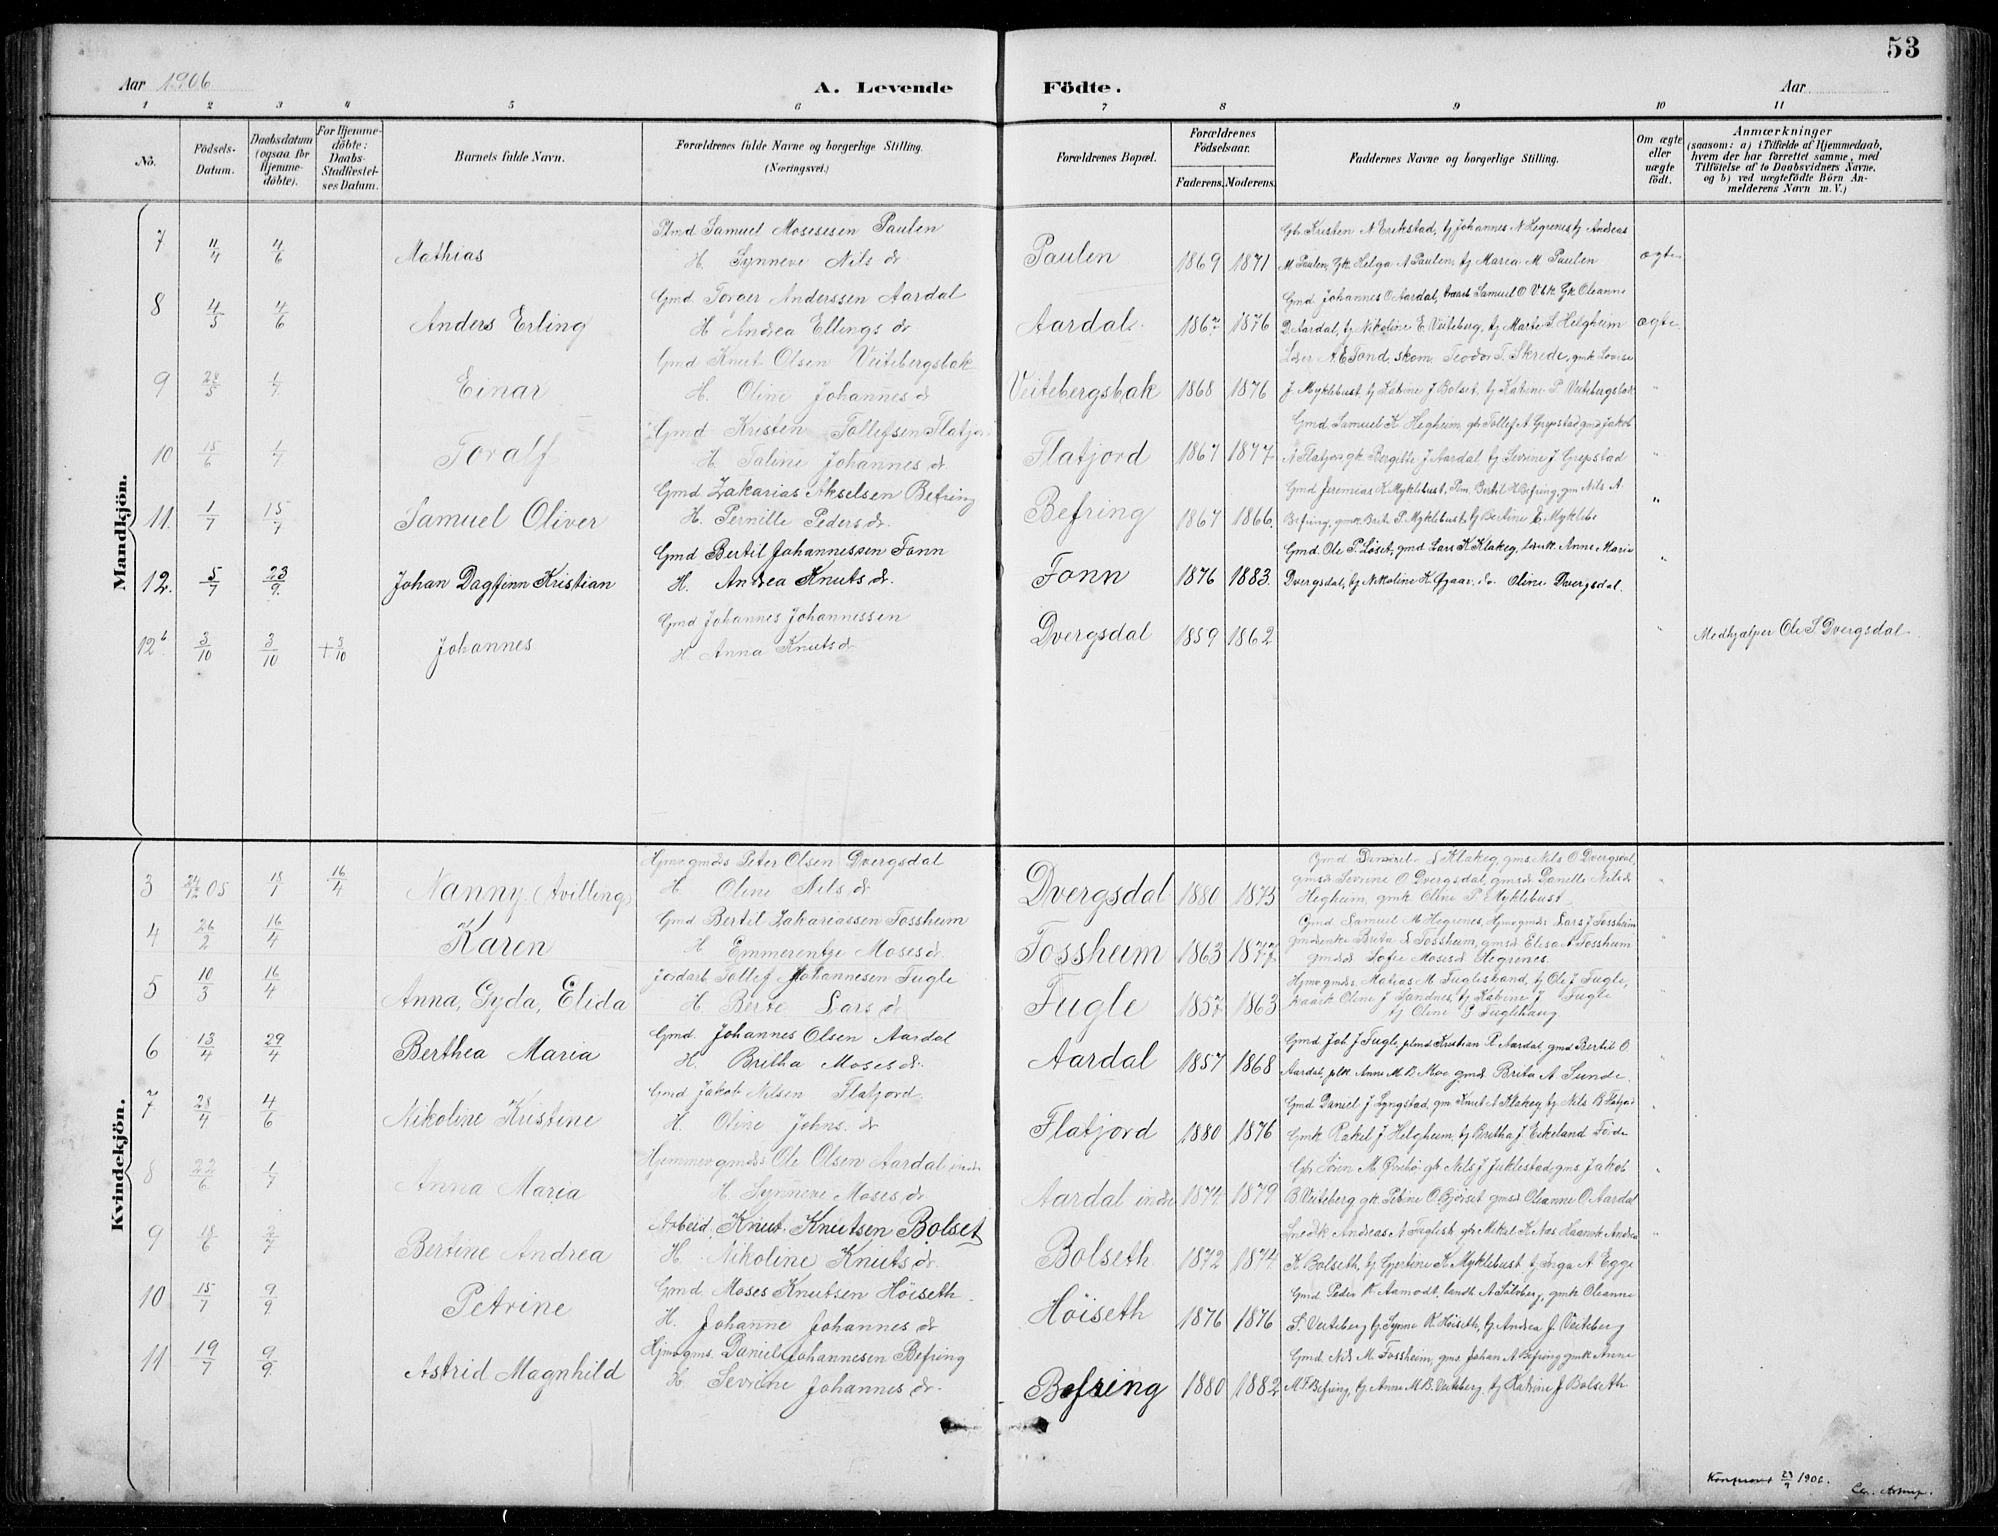 53
Aar 1906
A. Levende Födte.
Aar
1 2 3 4 5 6 7 8 9 10 11
No.
Födsels-Datum.
Daabsdatum (ogsaa for Hjemme-döbte).
For Hjemme-döbte: Daabs-Stadfæstel-ses Datum.
Barnets fulde Navn.
Forældrenes fulde Navne og borgerlige Stilling. (Næringsvei.)
Forældrenes Bopæl.
Forældrenes Födselsaar.
Faderens. Moderens.
Faddernes Navne og borgerlige Stilling.
Om ægte eller uægte födt.
Anmærkninger
(saasom: a) i Tilfælde af Hjemmedaab, hvem der har forrettet samme, med Tilföielse af to Daabsvidners Navne. og b) ved uægtefödte Börn An-melderens Navn m. V.)
Mandkjön.
7 11/4 4/6 Mathias
Plmd Samuel Mosesesen Paulen
H. Synneve Nils dr
Paulen 1869 1871
Gb. Kristen N Erikstad, tj Johannes N Hegrenes tj Andreas
M Paulen, Gk. Helga A Paulen, tj Maria M Paulen
ægte
8 4/5 4/6 Anders Erling
Gmd Torger Anderssen Aardal
H Andrea Ellings dr
Aardal 1867 1876
Gmd Johannes O Aardal, Samuel O Gk Oleanne
D. Aardal, tj Nikoline E Veiteberg, tj Marte S Helgheim
ægte
9 28/5 1/7 Einar
Gmd Knut Olsen Veitebergsbak
H. Oline Johannes d
Veitebergsbak 1868 1876
A E Fond, skom. Teodor T. Skrede, gmk Lovise
J Myklebust, tj Katrine J Bolset, tj Katrine P Veitebergsbak
"
10 15/6 1/7 Toralf
Gmd Kristen Tollefsen Flatjor
H. Taline Johannes dr
Flatjord 1867 1877
Gmd Samuel K Hegheim, gb Tollef A Grepstad gmd Jakob
N Flatjor gk Bergitte J Aardal tj Sevrine J Grepstad
"
11. 1/7 15/7 Samuel Oliver
Gmd Zakarias Akselsen Befring
H. Pernille Peders dr.
Befring 1867 1866.
Gmd Jeremias K Myklebust, Bertil H Befring, gm Nils A.
Befring, gmk Brite P. Myklebust tj Bertine E Myklebs
"
12. 5/7 23/9 Johan Dagfinn Kristian
Gmd Bertil Johannessen Fonn
H. Andrea Knuts dr.
Fonn 1876 1883.
Gmd. Ole P. Löset, gmd Lars K Klakeg, Anne Marie
Dvergsdal, tj Nikoline K. do Oline Dvergsdal.
"
12b 3/10 3/10 + 3/10 Johannes
Gmd Johannes Johannessen
H. Anna Knuts dr
Dvergsdal 1859 1862
"
Medhjælper Ole S Dvergsdal
Kvindekjön.
3 24/12 05 18/1 16/4 Nanny (Avilling)
Hjmv gmds Peter Olsen Dvergsdal
H Oline Nils dr
Dvergsdal 1880 1873
Gmd S Klakeg, gms Nils O Dvergsdal,
gmsd Sevrine O Dvergsdal, gmsd Danelle Nilsd
Hegheim, gmk Oline P Myklebust
"
4 26/2 16/4 Karen
Gmd Bertil Zakariassen Fossheim
H Emmerentje Moses dr.
Fossheim 1863 1877
Gmd Samuel M Hegrenes, Hjmv gmds Lars J Fossheim
gmdenke Brita S Fossheim, gmsd Elisa A Fossheim
gmsd Sofie Mosesd Hegrenes.
"
5 10/3 16/4 Anna, Gyda, Elida
Jordarb Tollef Johannesen Fugle
H. Berte Lars d
Fugle 1857 1863
Hjmv gmds. Matias M Fuglestrand, tj Ole J Fugle,
Oline J Sandnes, tj Katrine J Fugle
tj Oline P Fuglehaug
"
6 13/4 29/4 Berthea Maria
Gmd Johannes Olsen Aardal
H. Britha Moses dr.
Aardal 1857 1868
Gmd Job J Fugle, plmd Kristian R Aardal, gmd Bertil O.
Aardal, plk Anne M B. Moe gmd Brita A Sunde.
"
7 28/4 4/6 Nikoline Kristine
Gmd Jakob Nilsen Flatjord
H. Oline Johns. dr
Flatjord 1880 1876
Gmd Daniel J Lyngstad, gm Knut A Klakeg tj Nils B Flatjor
Gmk Rakel J Helgheim, tj Britha J. Eikeland Förde
"
8 22/6 1/7 Anna Maria
Hjemmev gmds Ole Olsen Aardal indre
H. Synneve Moses dr
Aardal indre 1874 1879
Gb. Sören M gb Nils J Juklestad, gms Jakob
B. Veiteberg gk Petrine O Björset gmsd Oleanne O. Aardal
"
9 18/6 2/7 Bertine Andrea
Arbeid. Knut Knutsen Bolset
H. Nikoline Knuts dr
Bolseth 1872 1874
Snedk Andreas N Fuglest gb Mikal K Nes Andrea
K Bolseth, tj Gjertine K Myklebust, tj Inga A Egge
"
10 15/7 9/9 Petrine
Gmd Moses Knutsen Höiseth
H. Johanne Johannes dr
Höiseth 1876 1876
Gmd Peder K Aamodt, landh A Sölvberg, gmk Oleanne
S. Veiteberg tj Synne K Höiseth, tj Andrea J. Veiteberg
11 19/7 9/9 Astrid Magnhild
Hjmv gms. Daniel Johannesen Befring
H. Sevrine Johannes dr.
Befring 1880 1882
Gmd. Nils M. Fossheim, gms Johan A Befring gmk Anne
M F. Befring, tj Anne M B. Veiteberg. tj Katrine J Bolseth
23/9 1906.